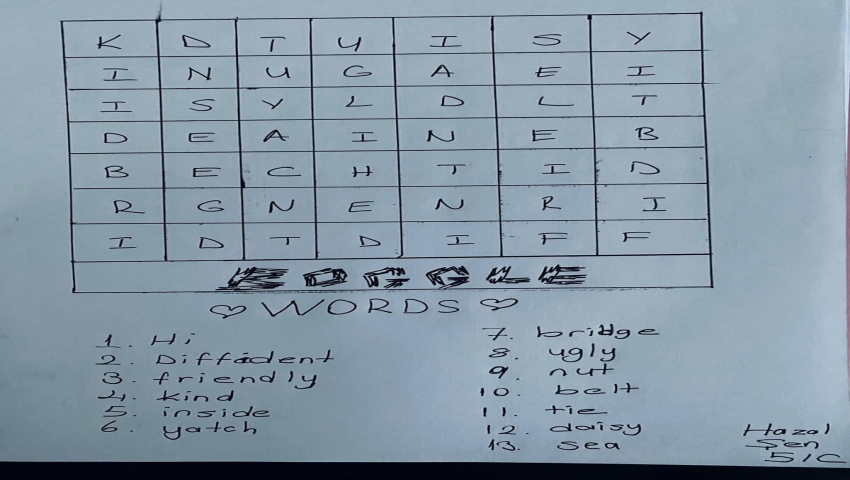 K D T U I S Y
I N U G A E I
I S Y L D L T
D E A I N E B
B E C H T I D
R G N E N R I
I D T D I F F
BOGGLE
WORDS
1. Hi
2. Diffident
3. friendly
4. kind
5. inside
6. yatch
7. bridge
8. ugly
9. nut
10. belt
11. tie
12. daisy
13. sea
Hazal
Şen
5/C